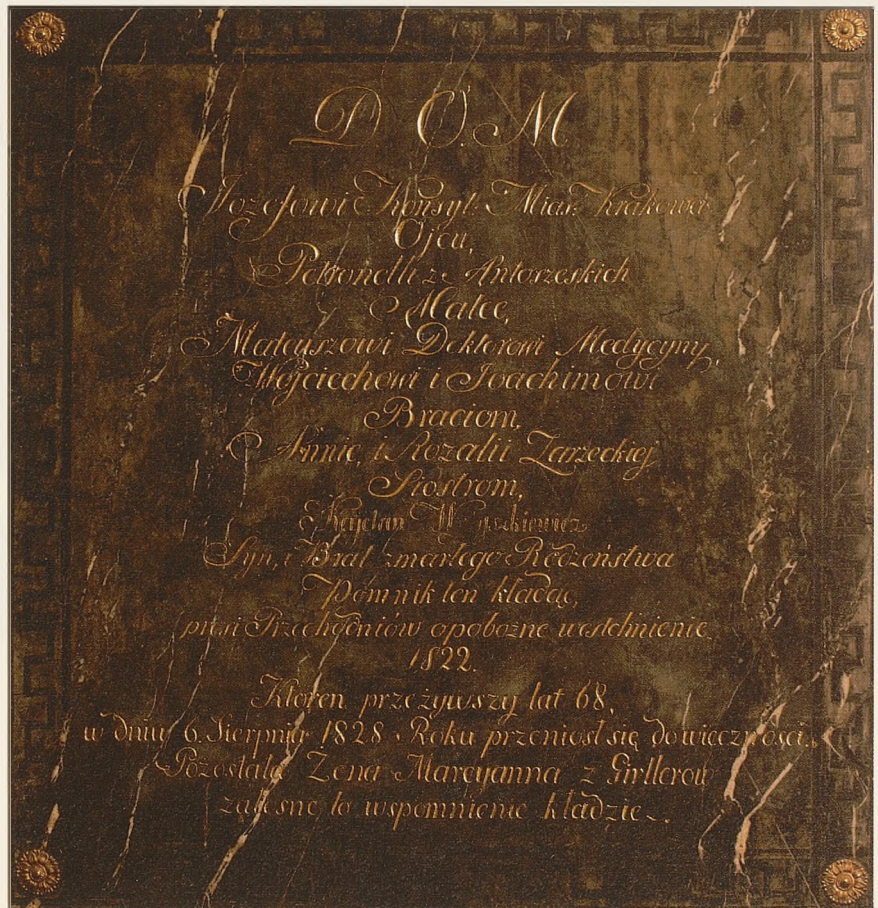 D. O. M
Jozefowi Konsyl: Mias: Krakowa
Ojcu,
Petronelli z Antoszeskich
Matce,
Mateuszowi Doktorowi Medycyny,
Wojciechowi i Joachimowi
Braciom,
Annie, i Rozalii Zarzeckiej
Siostrom,
Kajetan
Syn, i Brat zmarłego Rodzeństwa
Pomnik ten kładąc,
prosi Przechodniów o pobożne westchnienie
1822.
Któren przeżywszy lat 68,
w dniu 6. Sierpnia 1828 Roku przeniosł się do wieczności.
Pozostała Zona Marcyanna z
załosne to wspomnienie kładzie